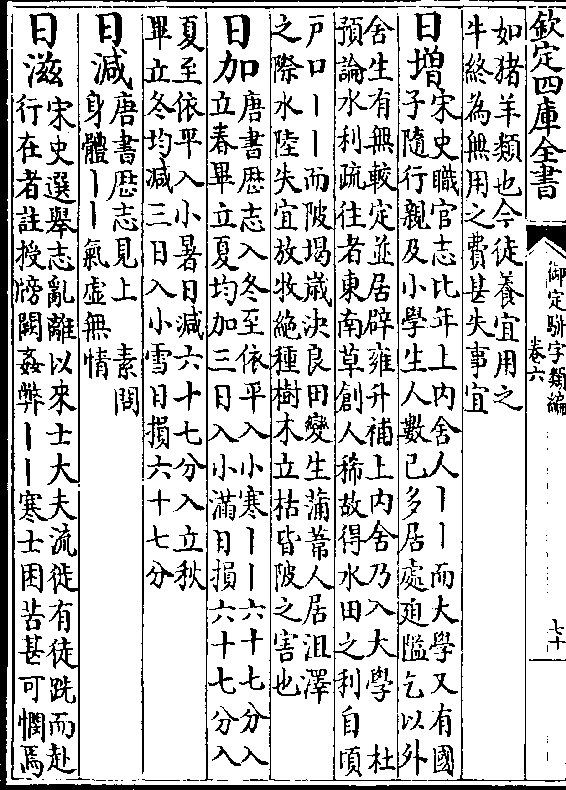 欽定四庫全書
御定駢字類編
卷六
七十
如猪羊類也今徒養宜用之
牛終為無用之費甚失事宜
日增宋史職官志比年上内舍人丨丨而大學又有國
子隨行親及小學生人數已多居處廹隘乞以外
舍生有無較定並居辟雍升補上内舍乃入大學　杜
預論水利疏往者東南草創人稀故得水田之利自頃
户口丨丨而陂堨歳決良田變生蒲葦人居沮澤
之際水陸失宜放牧絶種樹木立枯皆陂之害也
日加唐書厯志入冬至依平入小寒丨丨六十七分入
立春畢立夏均加三日入小滿日損六十七分入
夏至依平入小暑日減六十七分入立秋
畢立冬均減三日入小雪日損六十七分
日減唐書厯志見上　素問
身體丨丨氣虛無情
日滋宋史選舉志亂離以來士大夫流徙有徒跣而赴
行在者註授牓闕姦弊丨丨寒士困苦甚可憫焉